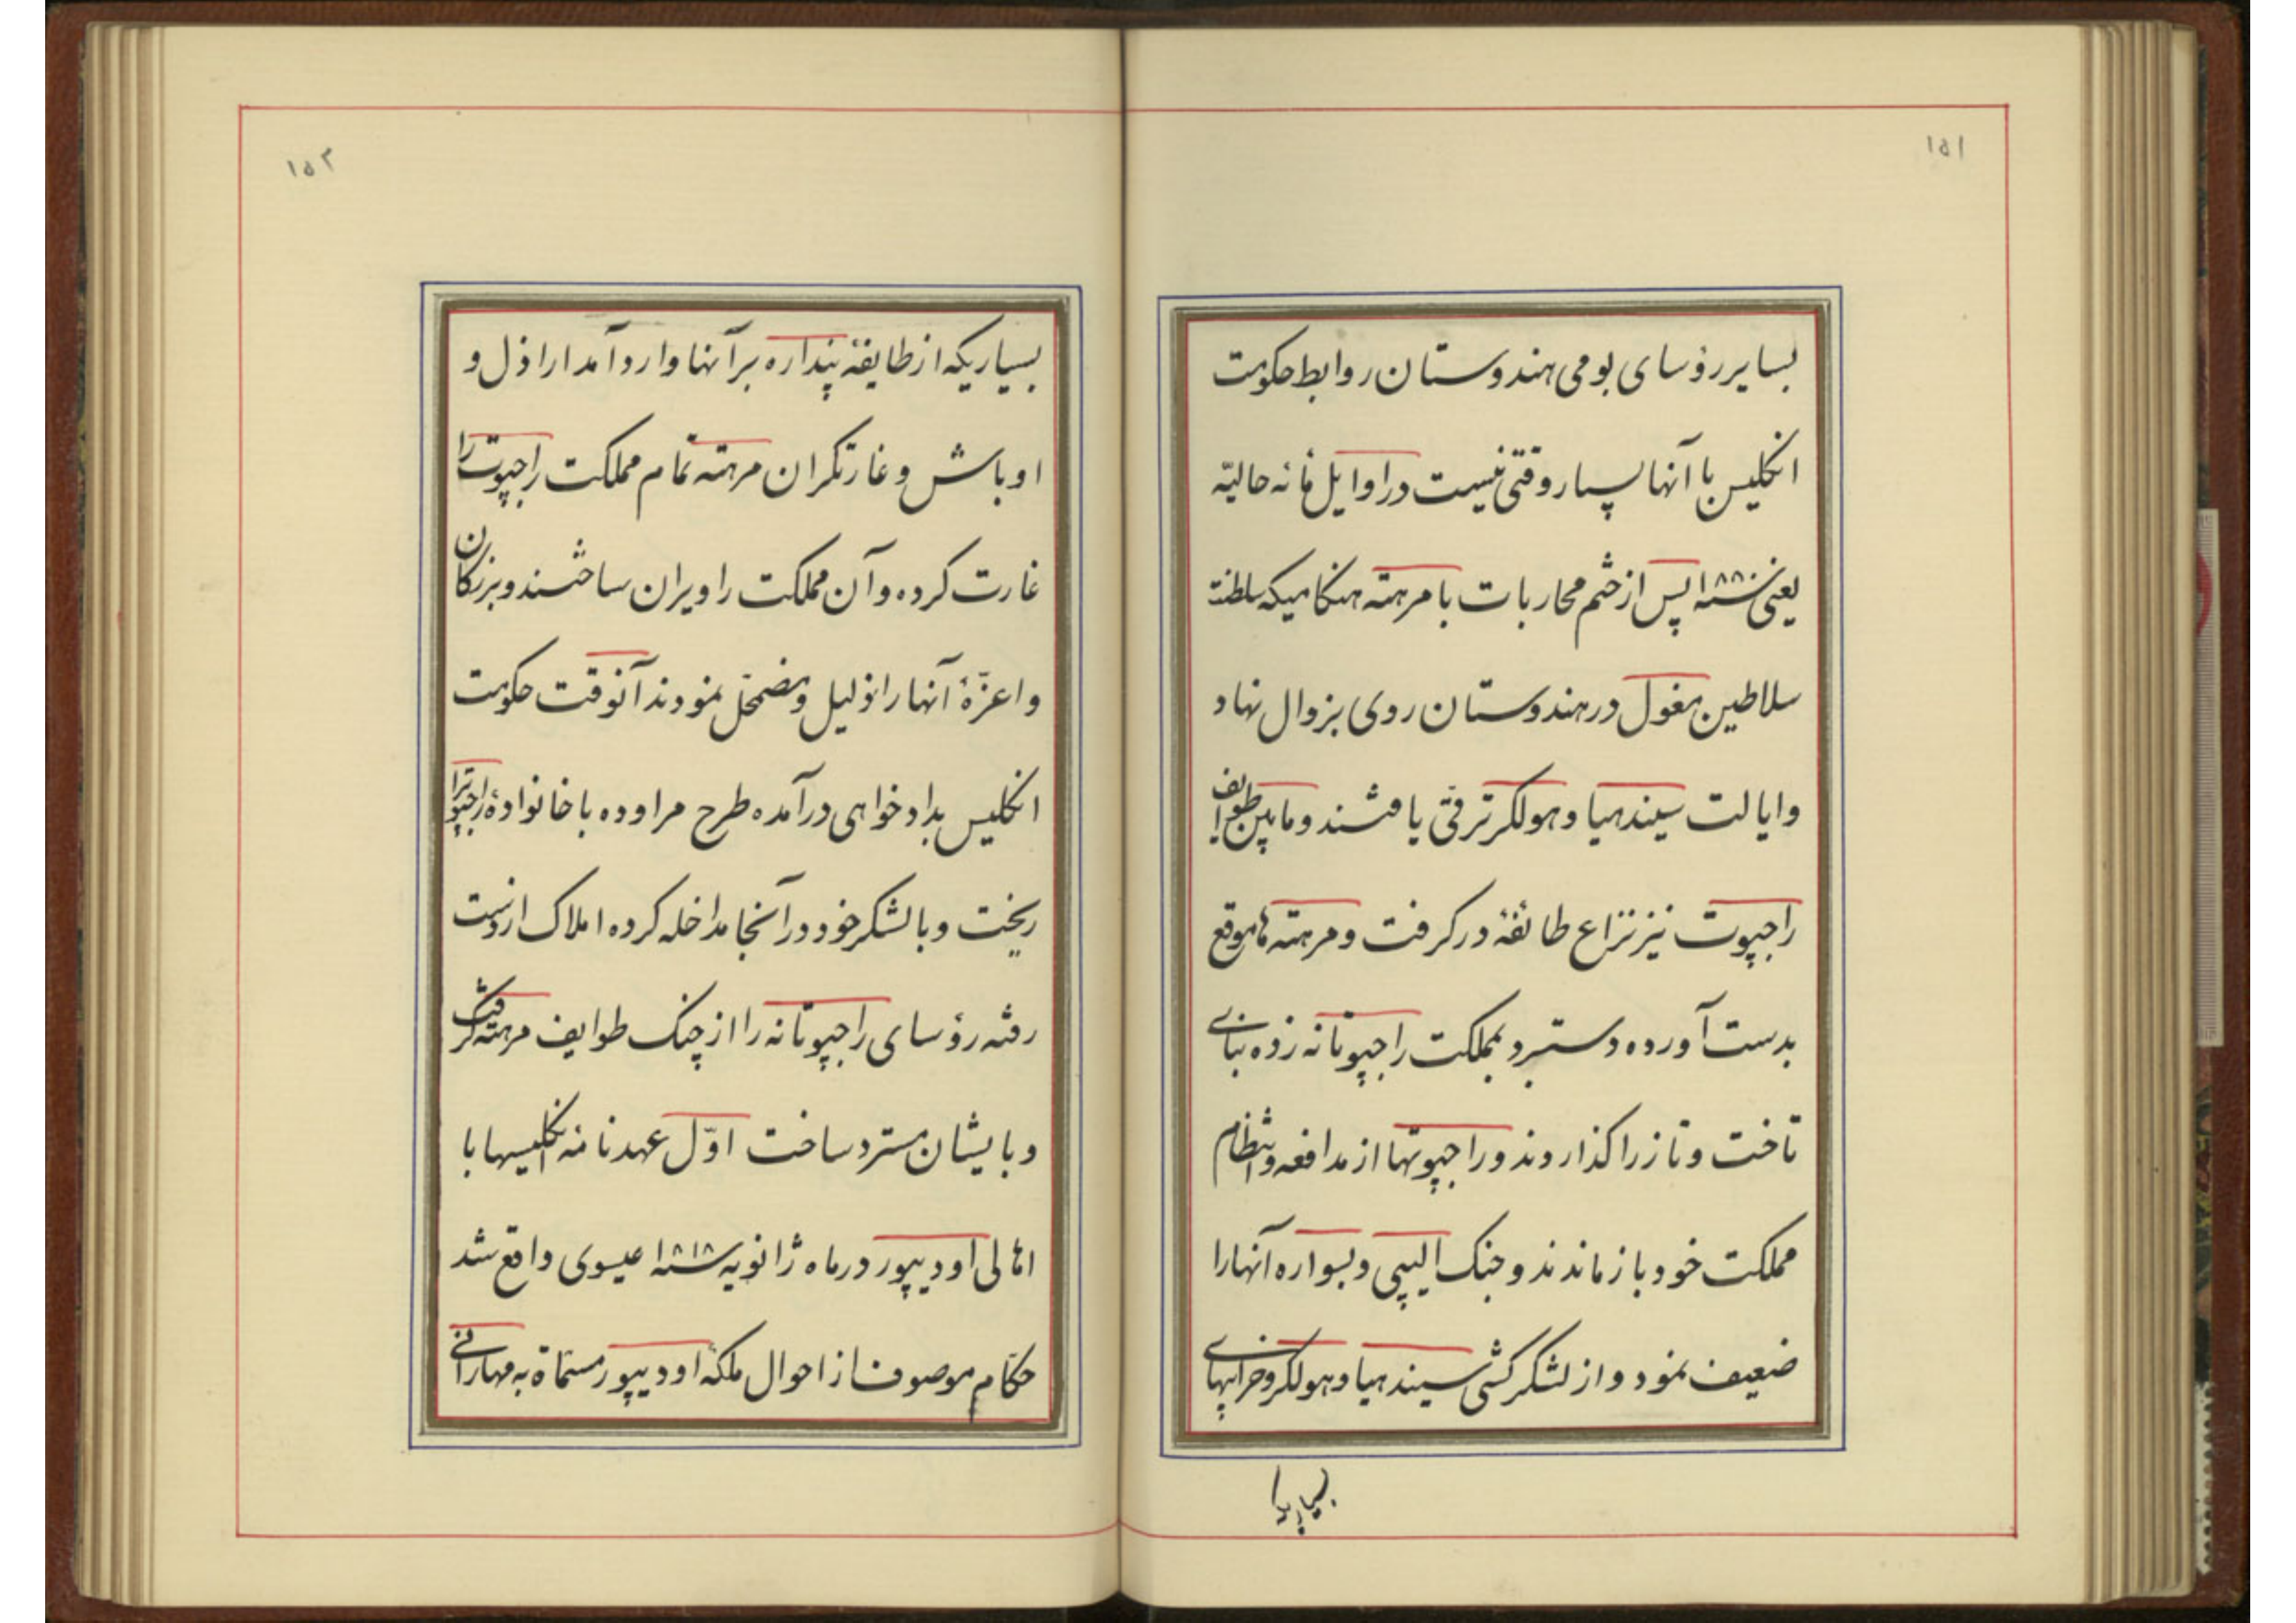 ۱۵۱
بسایر رؤسای بومی هندوستان روابط حکومت
انکلیس با آنها بسیار وقتی نیست در اوایل مأنه حالیّه
یعنی سنه ۱۸۰۰ پس از ختم محاربات با مرهته هنکامیکه سلطنت
سلاطین مغول در هندوستان روی بزوال نهاد
و ایالت سیندهیا و هولکر ترقی یافتند و مابین طوایف
راجپوت نیز نزاع طائفۀ درکرفت و مرهته ها موقع
بدست آورده دستبرد بمملکت راجپوتانه زده بنای
تاخت و تاز را کذاردند و راجپوتها از مدافعه و انتظام
مملکت خود باز ماندند و جنک الیپی و بسواره آنها را
ضعیف نمود و از لشکرکشی سیندهیا و هولکر و خرابیهای
۱۵۲
بسیاریکه از طایفۀ پنداره بر آنها وارد آمد اراذل و
اوباش و غارتکران مرهته تمام مملکت راجپوت را
غارت کرده و آن مملکت را ویران ساختند و بزرکان
و اعزّۀ آنها را ذلیل و مضمحلّ نمودند آنوقت حکومت
انکلیس بدادخواهی درآمده طرح مراوده با خانوادۀ راجپوت را
ریخت و با لشکر خود در آنجا مداخله کرده املاک از دست
رفته رؤسای راجپوتانه را از چنک طوایف مرهته کرفت
و بایشان مسترد ساخت اوّل عهدنامه انکلیسها با
اهالی اودیپور در ماه ژانویه سنه ۱۸۱۸ عیسوی واقع شد
حکّام موصوف از احوال ملکۀ اودیپور مسمّاة به مهارانی